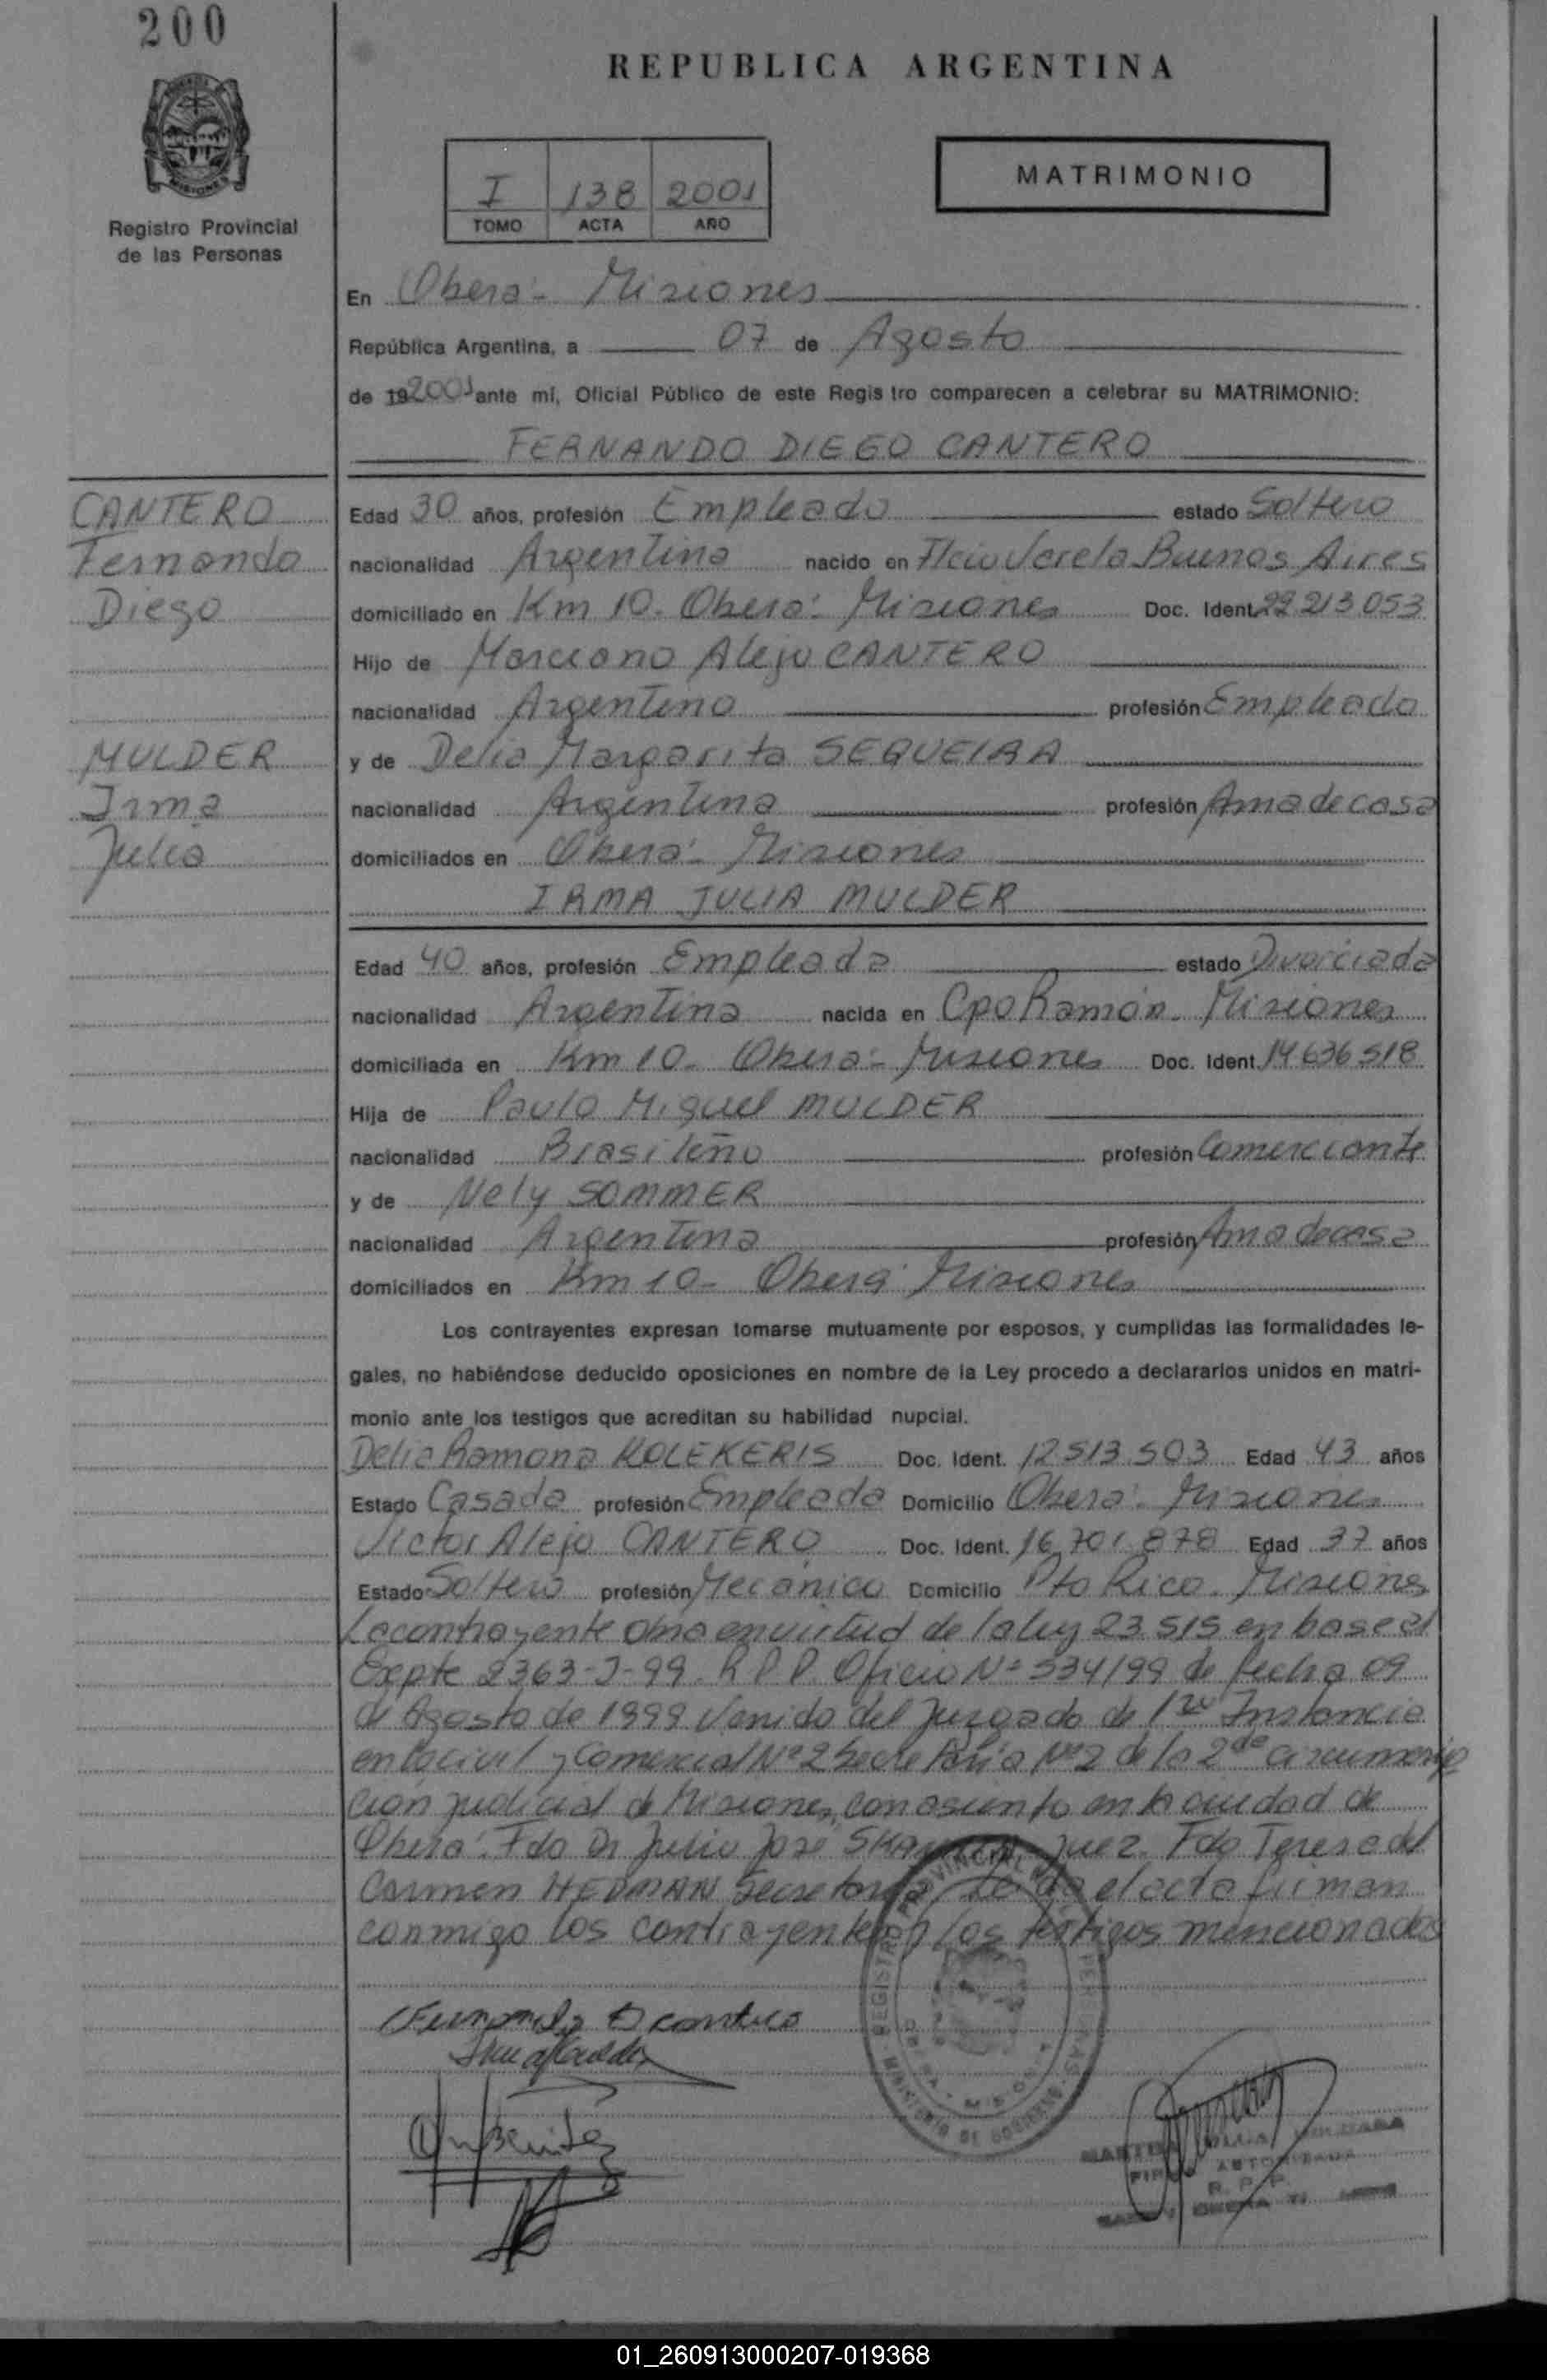 200
REPUBLICA ARGENTINA
MISIONES
Registro Provincial
de las Personas
I 138 2001
TOMO ACTA AÑO
MATRIMONIO
En Oberá - Misiones
República Argentina, a 07 de Agosto
de 19 2001 ante mí, Oficial Público de este Registro comparecen a celebrar su MATRIMONIO:
FERNANDO DIEGO CANTERO
CANTERO
Fernando
Diego
Edad 30 años, profesión Empleado estado Soltero
nacionalidad Argentina nacido en Flcio Varela Buenos Aires
domiciliado en Km 10. Oberá. Misiones Doc. Ident. 22 213 053
Hijo de Marciano Alejo CANTERO
nacionalidad Argentina profesión Empleado
MULDER
Irma
Julia
y de Delia Margarita SEQUEIRA
nacionalidad Argentina profesión Ama de casa
domiciliados en Oberá - Misiones
IRMA JULIA MULDER
Edad 40 años, profesión Empleada estado Divorciada
nacionalidad Argentina nacida en Cpo Ramón. Misiones
domiciliada en Km 10. Oberá - Misiones Doc. Ident. 14 636 518
Hija de Paulo Miguel MULDER
nacionalidad Brasileño profesión Comerciante
y de Nely SOMMER
nacionalidad Argentina profesión Ama de casa
domiciliados en Km 10 - Oberá Misiones
Los contrayentes expresan tomarse mutuamente por esposos, y cumplidas las formalidades le-
gales, no habiéndose deducido oposiciones en nombre de la Ley procedo a declararlos unidos en matri-
monio ante los testigos que acreditan su habilidad nupcial.
Delia Ramona KOLEKERIS Doc. Ident. 12 513 503 Edad 43 años
Estado Casada profesión Empleada Domicilio Oberá. Misiones
Victor Alejo CANTERO Doc. Ident. 16 701 878 Edad 37 años
Estado Soltero profesión Mecánico Domicilio Pto Rico. Misiones
La contrayente obra en virtud de la ley 23 515 en base al
Expte 2363-J-99. R P P. Oficio Nº 534/99 de fecha 09
de Agosto de 1999 Venido del Juzgado de 1ra Instancia
en lo civil y Comercial Nº 2 Secretaría Nº 2 de la 2da circunscrip
ción judicial de Misiones, con asiento en la ciudad de
Oberá. Fdo Dr Julio José Juez. Fdo Teresa del
Carmen HEDMAN Secretaria. Leída el acta firman
conmigo los contrayentes y los testigos mencionados
Fernando D Cantero
AUTORIZADA
R. P. P.
01_260913000207-019368